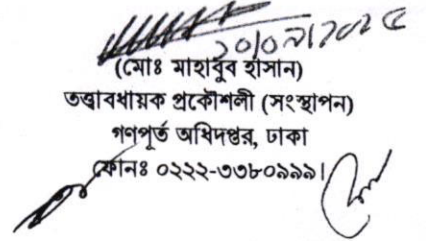 ২০/০৯/২০২৫
(মোঃ মাহাবুব হাসান)
তত্ত্বাবধায়ক প্রকৌশলী (সংস্থাপন)
গণপূর্ত অধিদপ্তর, ঢাকা
ফোনঃ ০২২২-৩৩৮০৯৯৯।